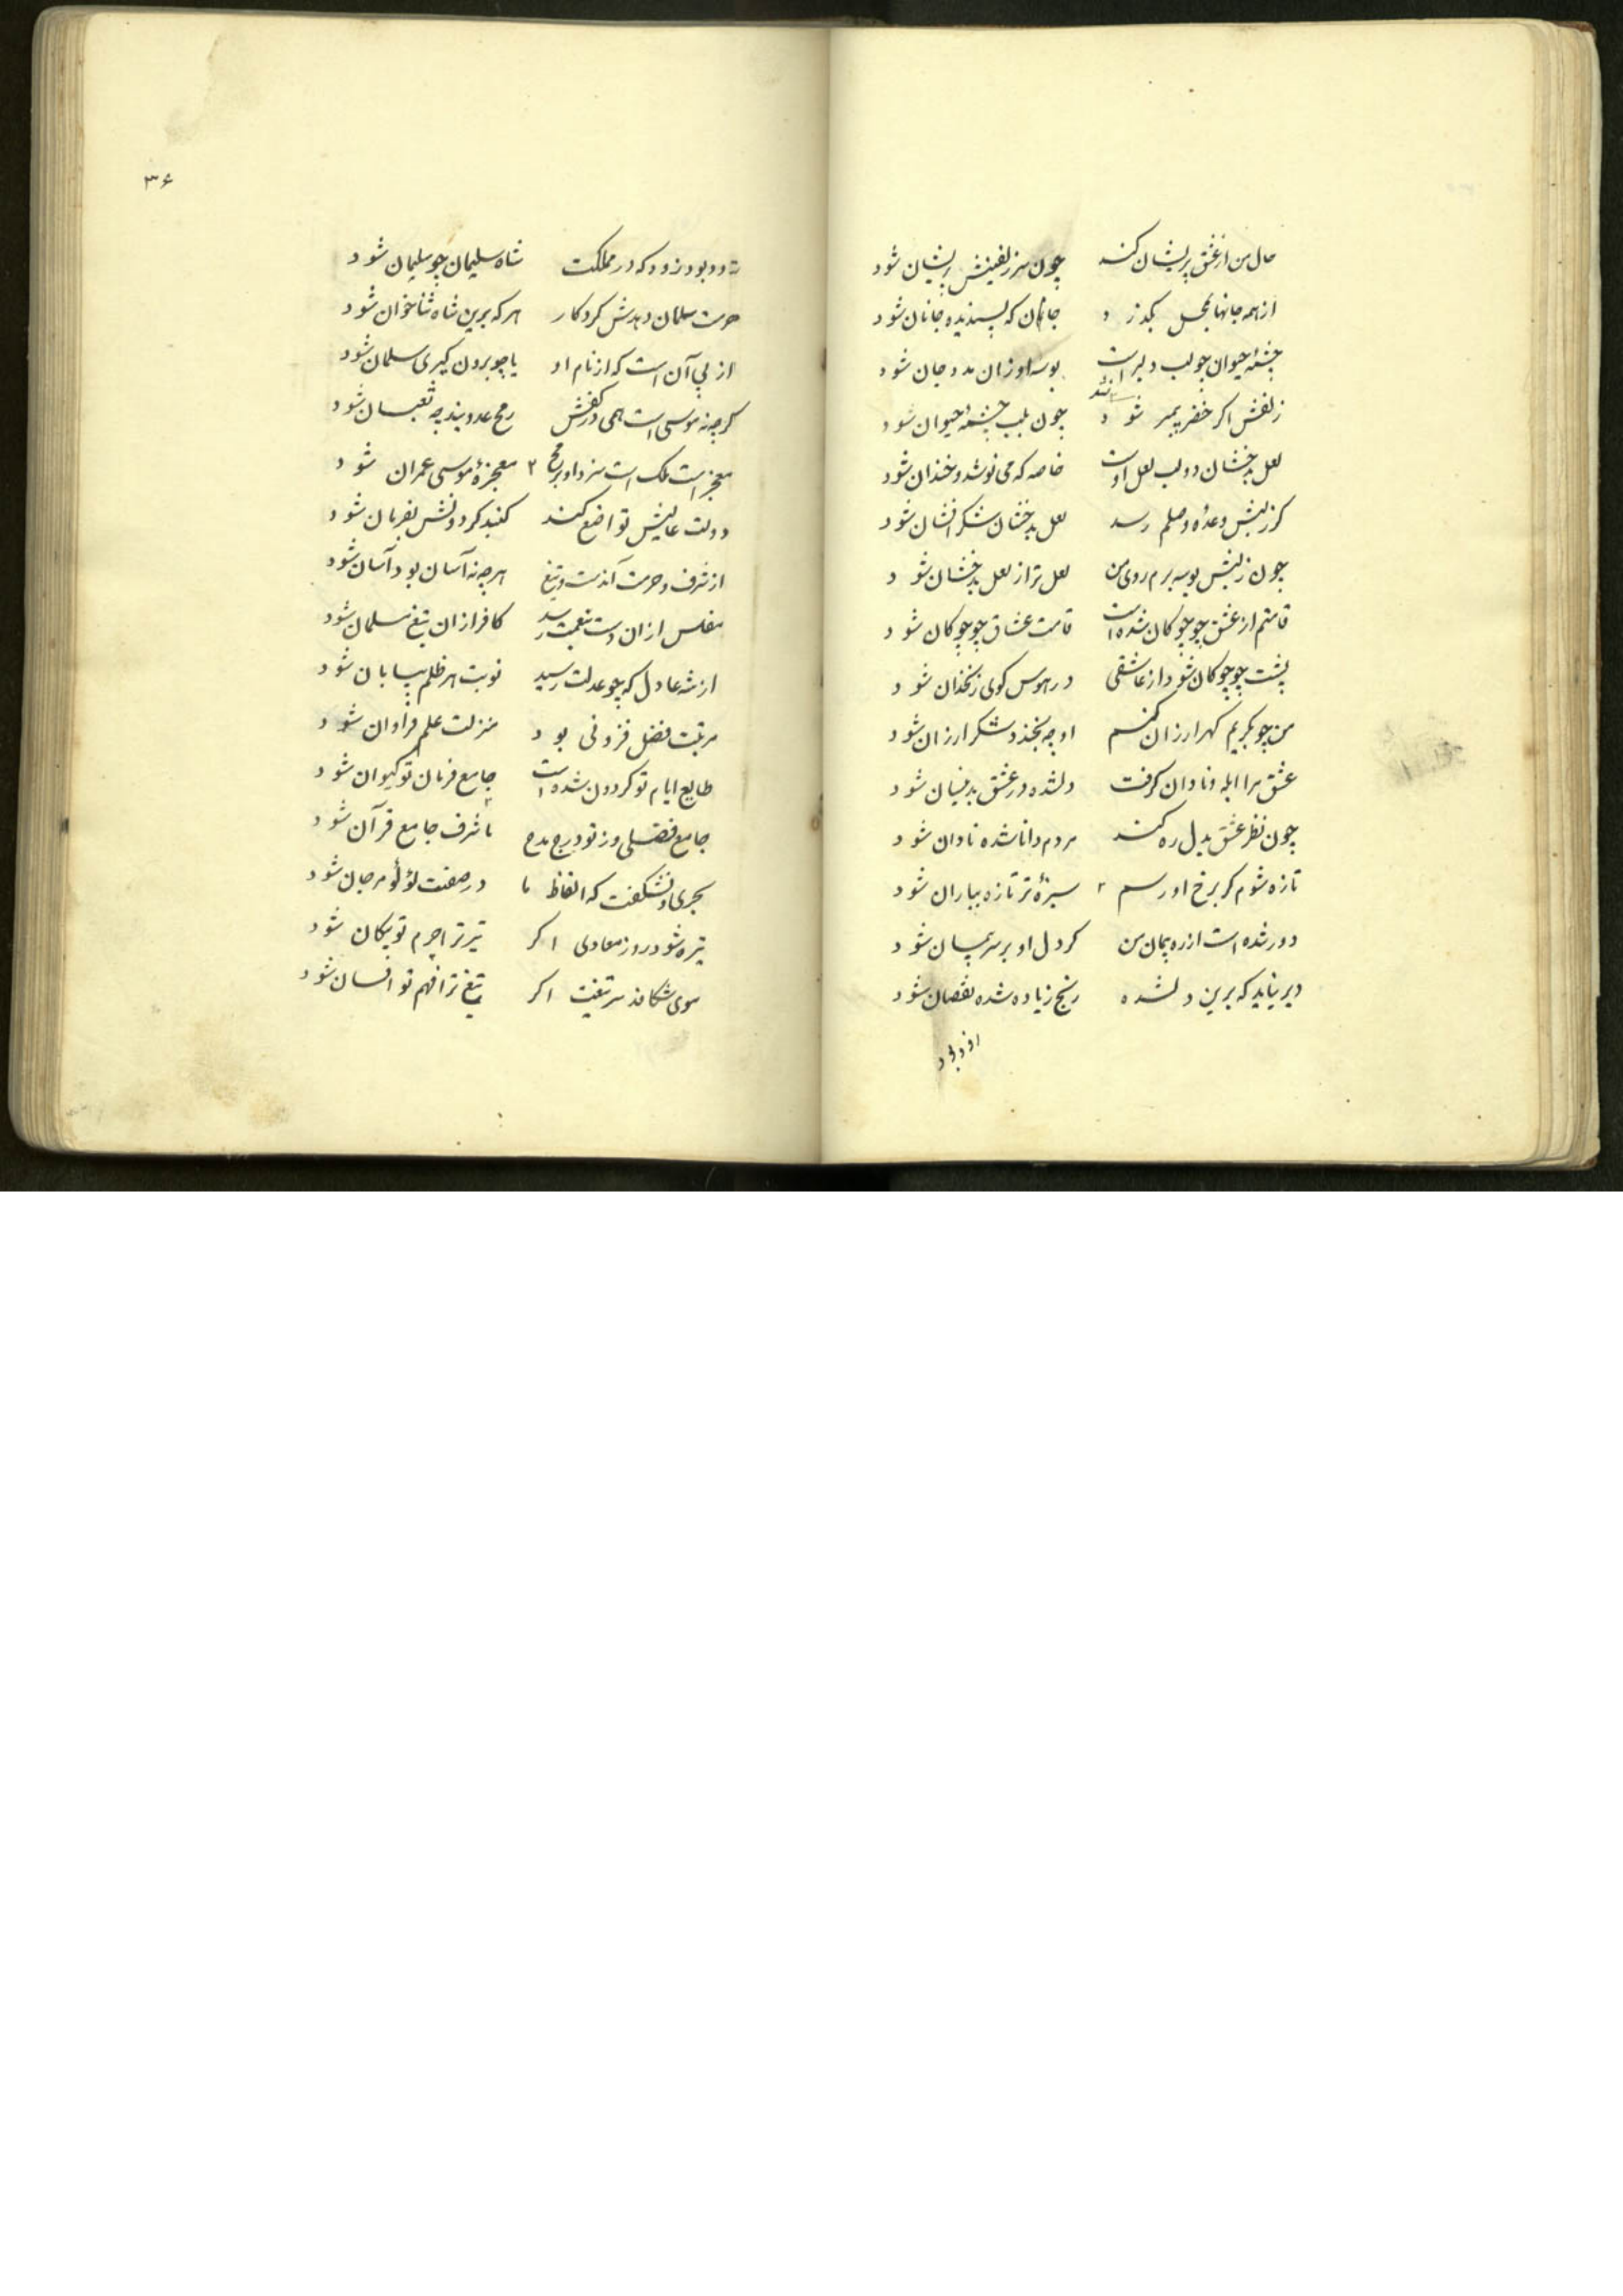 حال من از عشق پریشان کند چون سر زلفینش پریشان شود
از همه جانها بخل بگذرد جانان که پسندیده جانان شود
چشمهٔ حیوان چو لب دلبر است بوسه او زان مدد جان شود
زلفش اگر خضر پیمبر شود چون بلب چشمهٔ حیوان شود
لعل بدخشان دو لب لعل اوست خاصه که می نوشد و خندان شود
کز لبش وعدهٔ وصلم رسد لعل بدخشان شکر افشان شود
چون ز لبش بوسه برم روی من لعل تر از لعل بدخشان شود
قامتم از عشق چو چوکان شده است قامت عشاق چو چوکان شود
پشت چو چوکان شود از عاشقی در هوس کوی زنخدان شود
من چو بکریم کهر ارزان کنم او چه بخندد شکر ارزان شود
عشق مرا ابله و نادان کرفت دلشده در عشق بدینسان شود
چون نظر عشق بدل ره کند مردم دانا شده نادان شود
تازه شوم کر برخ او رسم ۲ سبزهٔ تر تازه بباران شود
دور شده است از ره پیمان من کر دل او بر سر پیمان شود
دیر نیاید که برین دلشده رنج زیاده شده نقصان شود
۳۶
بود زود که در مملکت شاه سلیمان چو سلیمان شود
حرمت سلمان دهدش کردکار هر که برین شاه ثناخوان شود
از پی آن است که از نام او یا چو برون کیری سلمان شود
کرچه نه موسی است همی در کفش رمح عدو بند چه ثعبان شود
معجز است ملک است ۲ معجزهٔ موسی عمران شود
دولت عالیش تواضع کند کنبد کردونش بفرمان شود
از شرف و حرمت هرچه نه آسان بود آسان شود
مفلس از ان دست بنعمت رسد کافر از ان تیغ مسلمان شود
از شه عادل که چو عدلت رسید نوبت هر ظلم بپایان شود
مرتبت فضل فزونی بود منزلت علم فراوان شود
طایع ایام تو کردون شده است جامع فرمان تو کیوان شود
جامع فضلی وز تو درج مدح با شرف جامع قرآن شود
بحری و نشکفت که الفاظ ما در صفتت لؤلؤ و مرجان شود
تیره شود روز معادی اکر تیر ترا جرم تو پیکان شود
موی شکافد سر تیغت اکر تیغ ترا فهم تو افسان شود